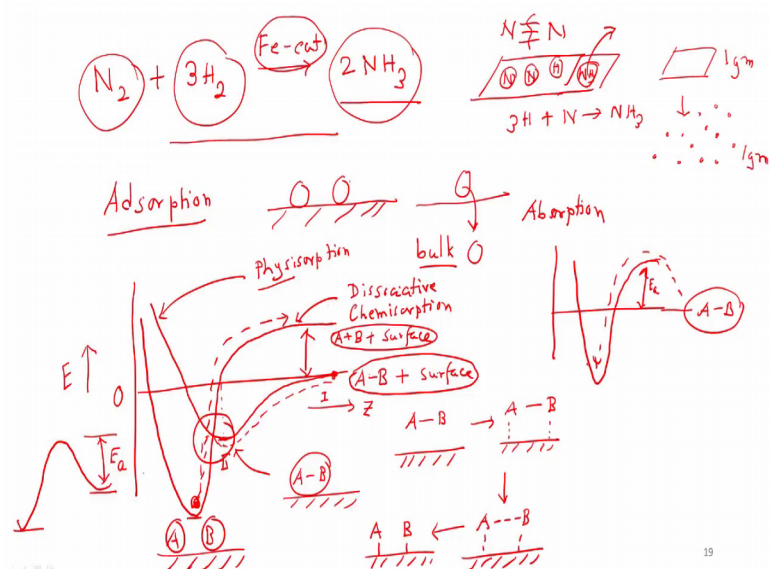 N₂ + 3H₂ Fe-cat → 2NH₃
N≡N
N N H NH₃
3H + N → NH₃
1gm
1gm
Adsorption
bulk
Absorption
Physisorption
Dissociative
Chemisorption
A+B + surface
A-B + surface
E ↑
0
I → Z
Ea
A-B
A B
Ea
A-B
A-B → A-B
A B ← A---B
19